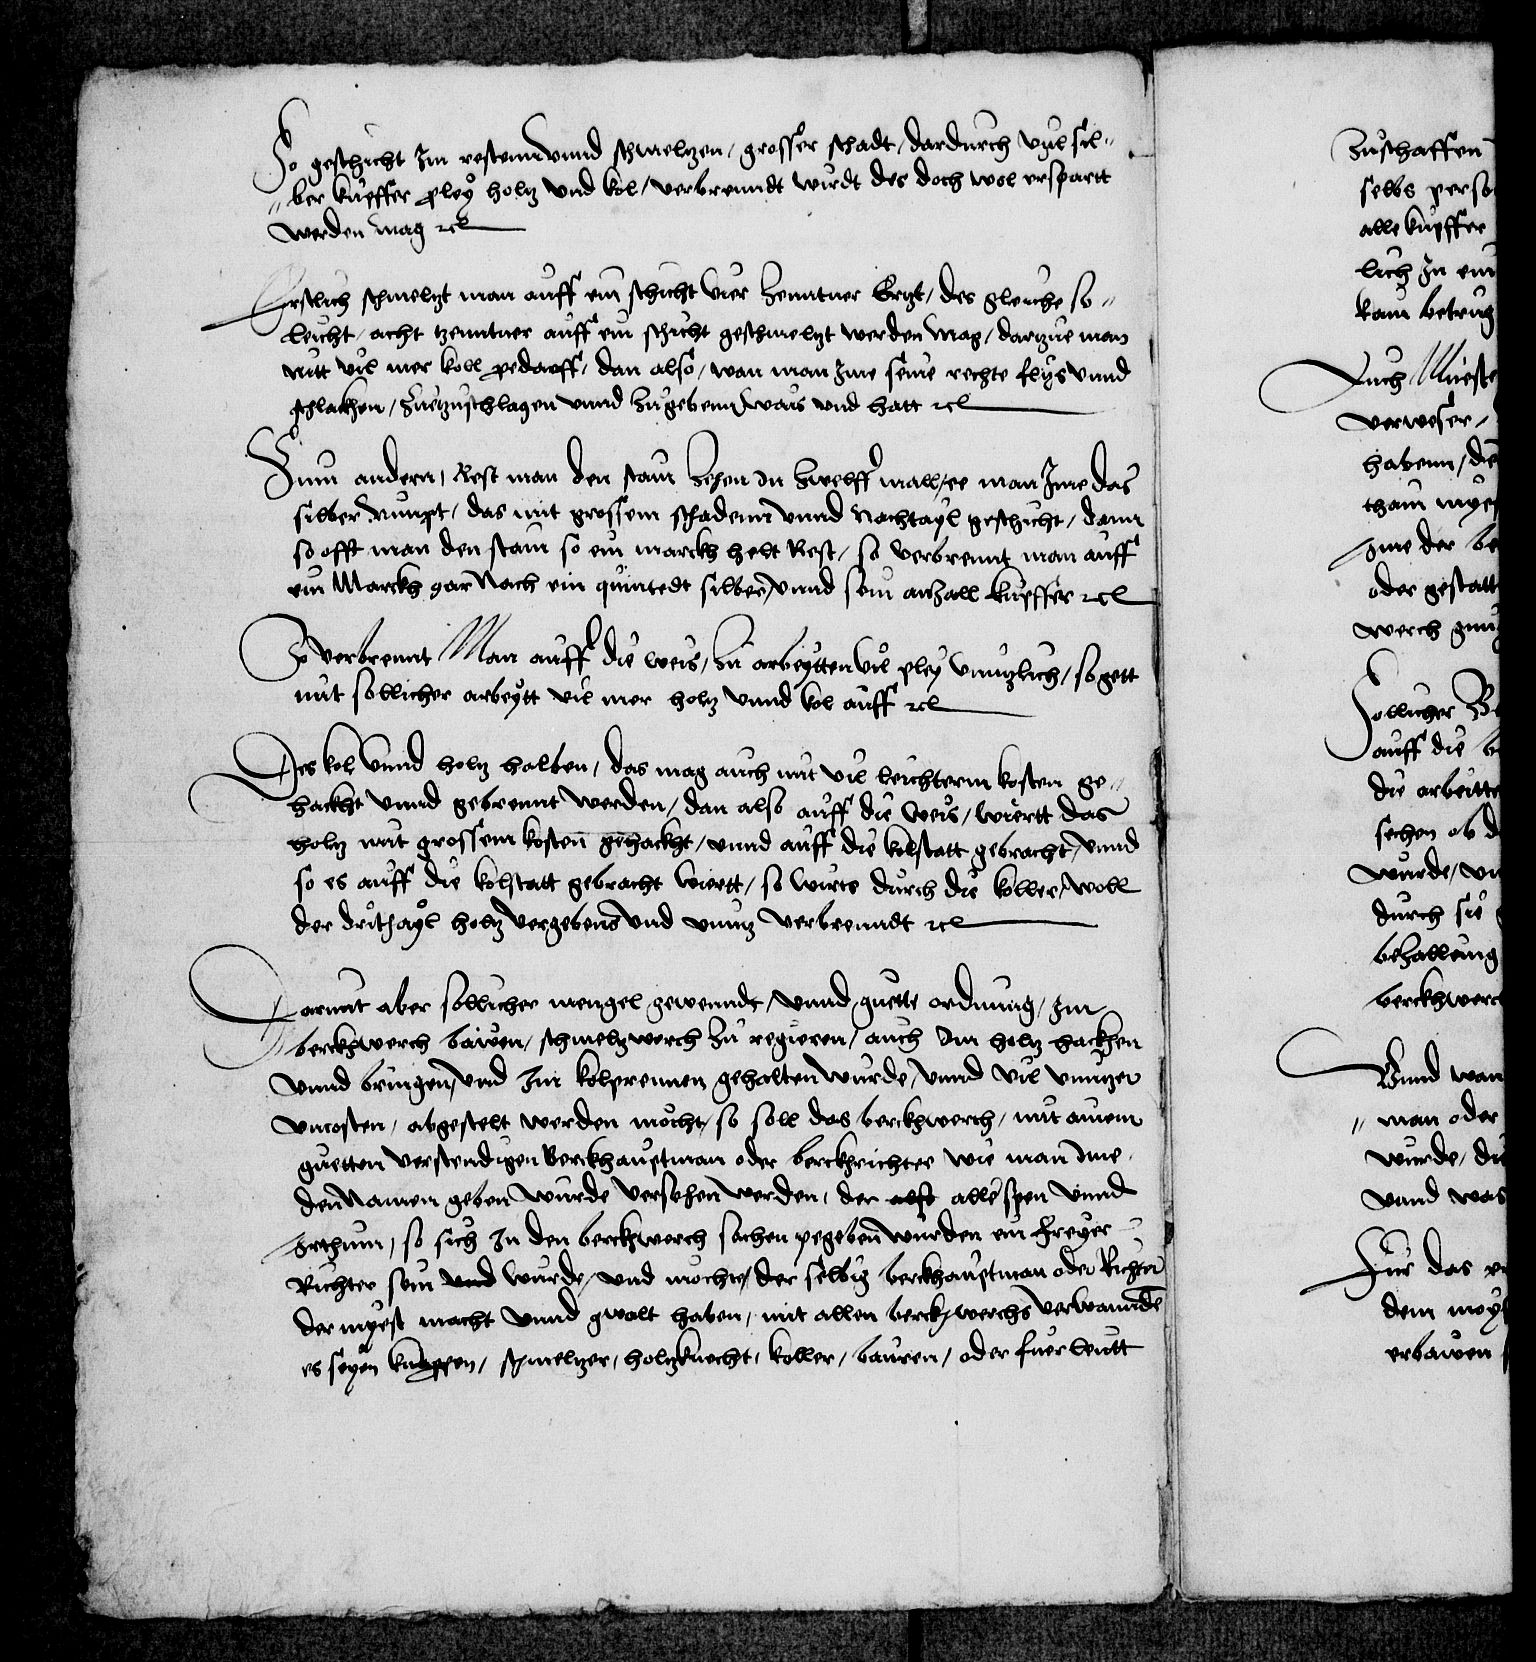 So geschicht Im restenn vnnd schmeltzen / grosser schadt / dardurch vyl sil-
ber kupffer pley holtz vnd kol / verbrenndt wirdt des doch wol erspartt
werden mag etc
Erstlich schmeltzt man auff ein schicht vier Zenntner Ertzt / des gleiche so
leicht / acht tzenntner auff ein schicht geschmeltzt werden mag / dartzue man
nitt vil mer koll pedarff / dan also / wan man Ime seine rechte flys vnnd
schlackhen / Zuetzuschlagen vnnd Zugebenn wais vnd hatt etc
Zum andern / Rest man den stain Zehen In Zwelff mall / ee man Ime das
silber Nimpt / das mit grossem schadenn vnnd Nachtayl geschicht / dann
so offt man den stain so ein marckh helt Rest / so verbrennt man auff
ein Marckh gar Nach ein quintedt silber / vnnd sein anzall kupffer etc
So verbrennt Man auff die weis / Zu arbeytten vil pley vnnutzlich / so gett
mit sollicher arbeytt vil mer holtz vnnd kol auff etc
Des kol vnnd holtz halben / das mag auch mit vil leichterm kosten ge-
hackht vnnd gebrennt werden / dan also auff die weis / wiertt das
holtz mit grossem kosten gehackht / vnnd auff die kolstatt gebracht / vnnd
so es auff die kolstatt gebracht wiertt / so wirts durch die koller / woll
der dritthayl holtz vergebens vnd vnutz verbrenndt etc
Darmit aber sollicher mengel gewenndt / vnnd guette ordnung / Im
berckhwerch bawen / schmeltzwerch Zu regieren / auch Im holtz hackhen
vnnd bringen / vnd Im kolprennen gehalten wurde / vnnd vil vnutzer
vncosten / abgestelt werden mocht / so soll das berckhwerch / mit ainem
guetten verstendigen Berckhauptman oder berckhrichter wie man Ime
den Namen geben wurde versehen werden / der alle span vnnd
Irthum / so sich In den berckhwerch sachen pegeben wurden ein freyer
Richter sein vnd wurde / vnd mochte / der selbig berckhauptman oder Richter
der myest macht vnnd gwalt haben / mit allen berckhwerchs verwanndte
es seyen knappen / schmeltzer / holtzknecht / koller / bauren / oder fuer leutt
Zuschaffen
selbs perso
alle kupffer
lich In ein
kain betrug
Auch Muest
verweser /
habenn / die
thain mye
Ime der be
oder gestatt
werch gnu
Sollicher
auff die
die arbeitte
sechen ob d
wurde / vn
durch sie
behallting
berckhwerc
Vnnd wan
man oder
wurde / die
vnnd was
Für das
dem moy
erbawen